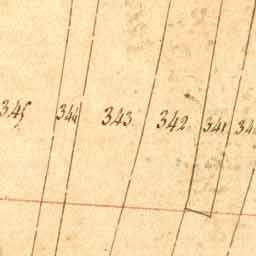 345 344 343 342 341